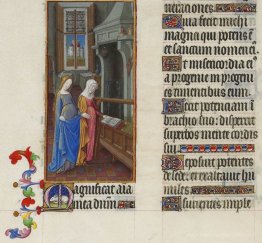 neraciones.
Quia fecit michi
magna qui potens
et sanctum nomen
Et misericordia ei
a progenie in progeni
es timentibus eum
Fecit potenciam
brachio suo: dispersit
superbos mente cordis
sui
Deposuit potentes
de sede. et exaltauit hu
miles
Esurientes imple
Magnificat aīa
mea dnm